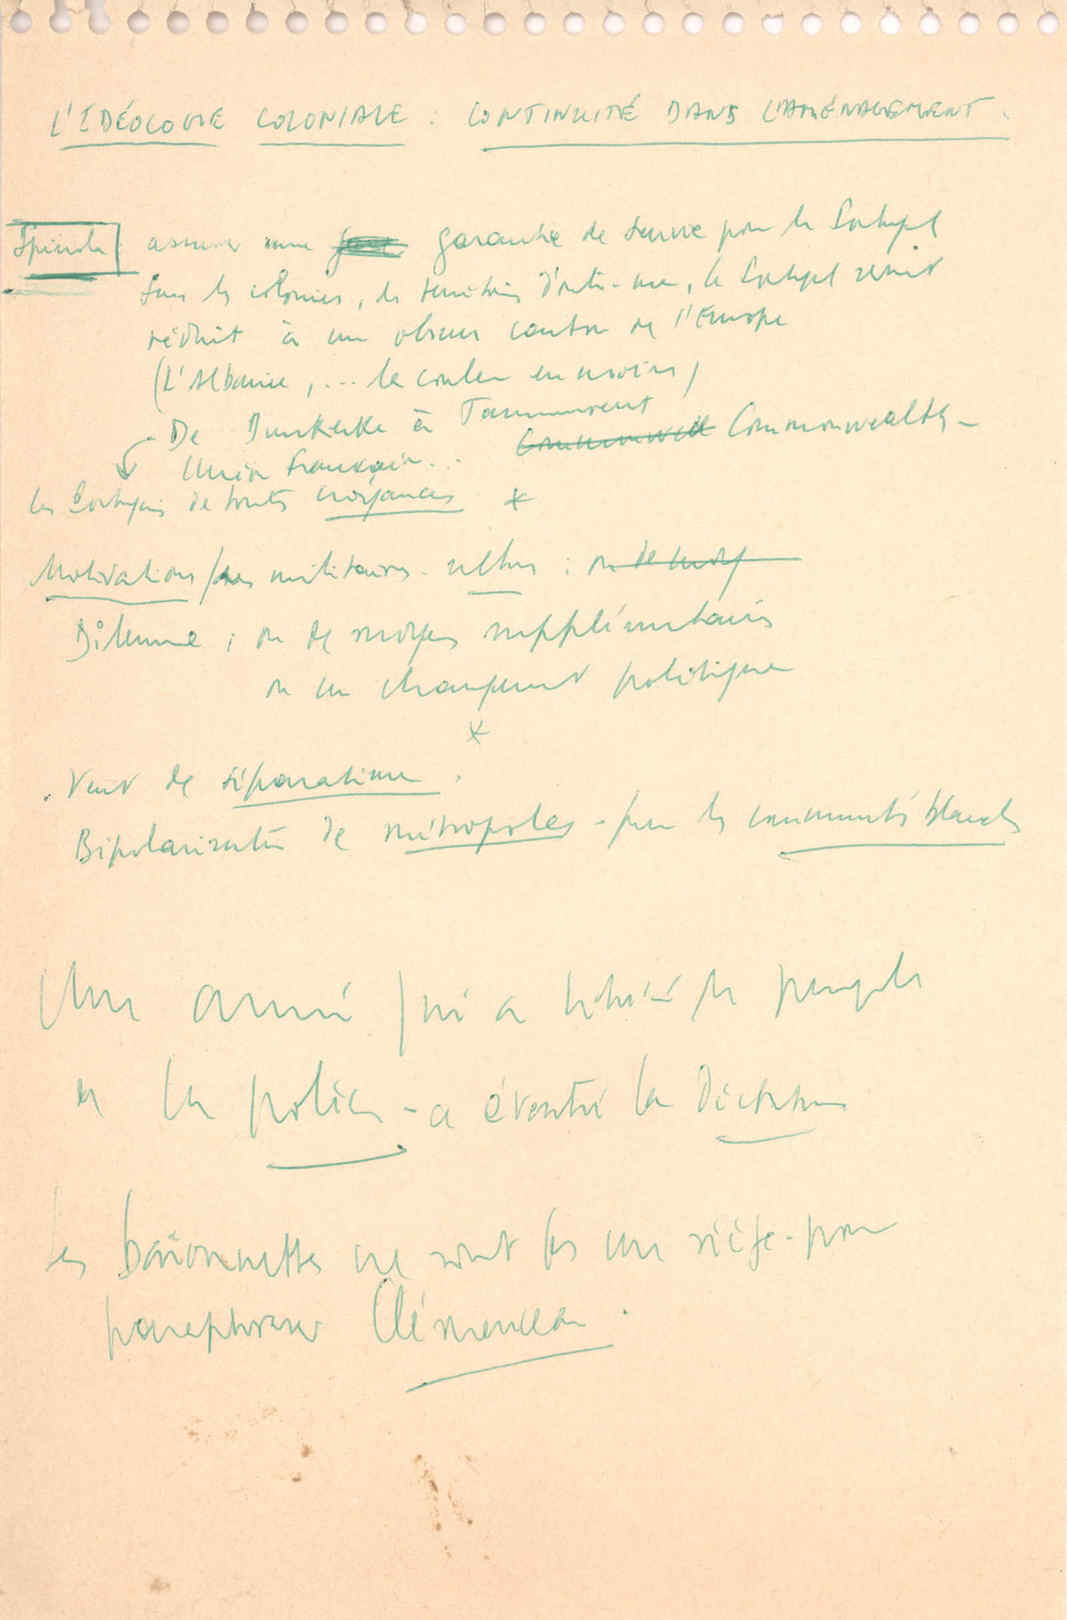 L'IDÉOLOGIE COLONIALE : CONTINUITÉ DANS L'AMÉNAGEMENT.
Spinola : assurer une garantie de survie pour le Portugal
Sans les colonies, les territoires d'outre-mer, le Portugal serait
réduit à un obscur canton de l'Europe
(L'Albanie, ... la couleur en moins)
De Dunkerke à Tamanrasset
Commonwealth Commonwealth -
Union française...
les Portugais de toutes croyances *
Motivations militaires - ultras : ou de moy
Dilemme : ou de moyens supplémentaires
ou un changement politique
*
. Vent de séparatisme .
Bipolarisation de métropoles - par les communautés blanches
Une armée qui a libéré le peuple
et la police - a éventré la Dictature
Les baïonnettes ne sont pas un siège - pour
paraphraser Clémenceau .